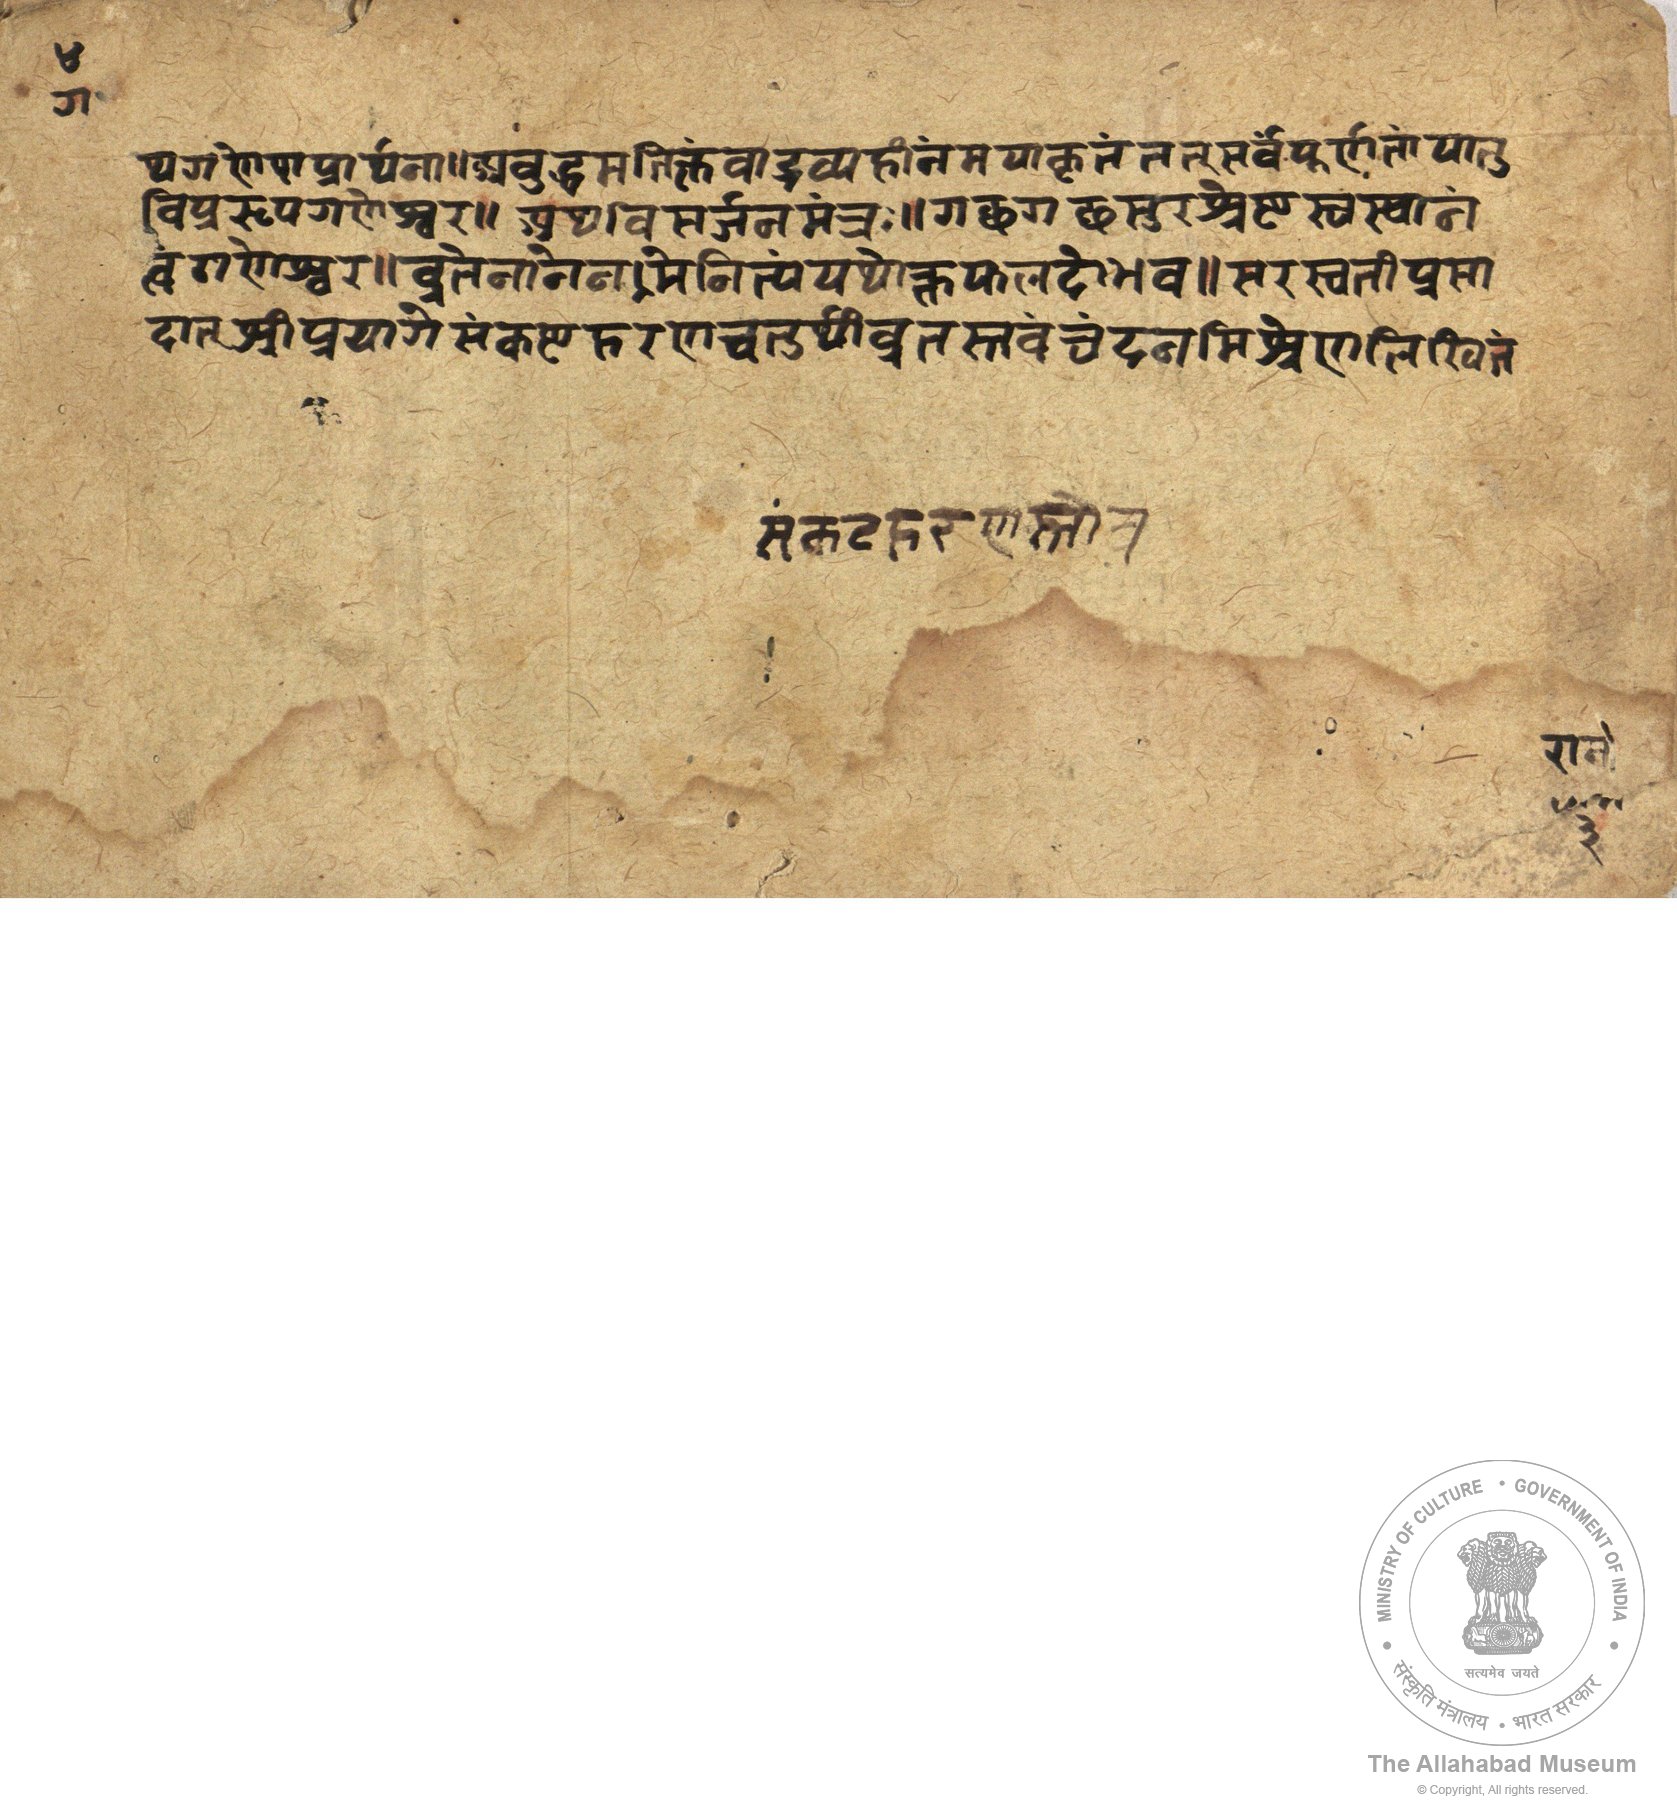 ४
ग
थगणेशप्रार्थना॥अवुद्धमतिरिक्तंवाद्रव्यहीनंमयाकृतं तत्सर्वंपूर्णतांयातु
विप्ररूपगणेश्वर॥ अथविसर्जनमंत्रः॥गछगछसुरश्रेष्टस्वस्थानं
त्वंगणेश्वर॥व्रतेनानेनमेनित्यंयथोक्तफलदोभव॥सरस्वतीप्रसा
दात्श्रीप्रयागेसंकष्टहरणचतुर्थीव्रतस्तवंचंदनमिश्रेणलिखितं
संकटहरणस्तोत्र
३
MINISTRY OF CULTURE • GOVERNMENT OF INDIA
सत्यमेव जयते
संस्कृति मंत्रालय • भारत सरकार
The Allahabad Museum
© Copyright, All rights reserved.